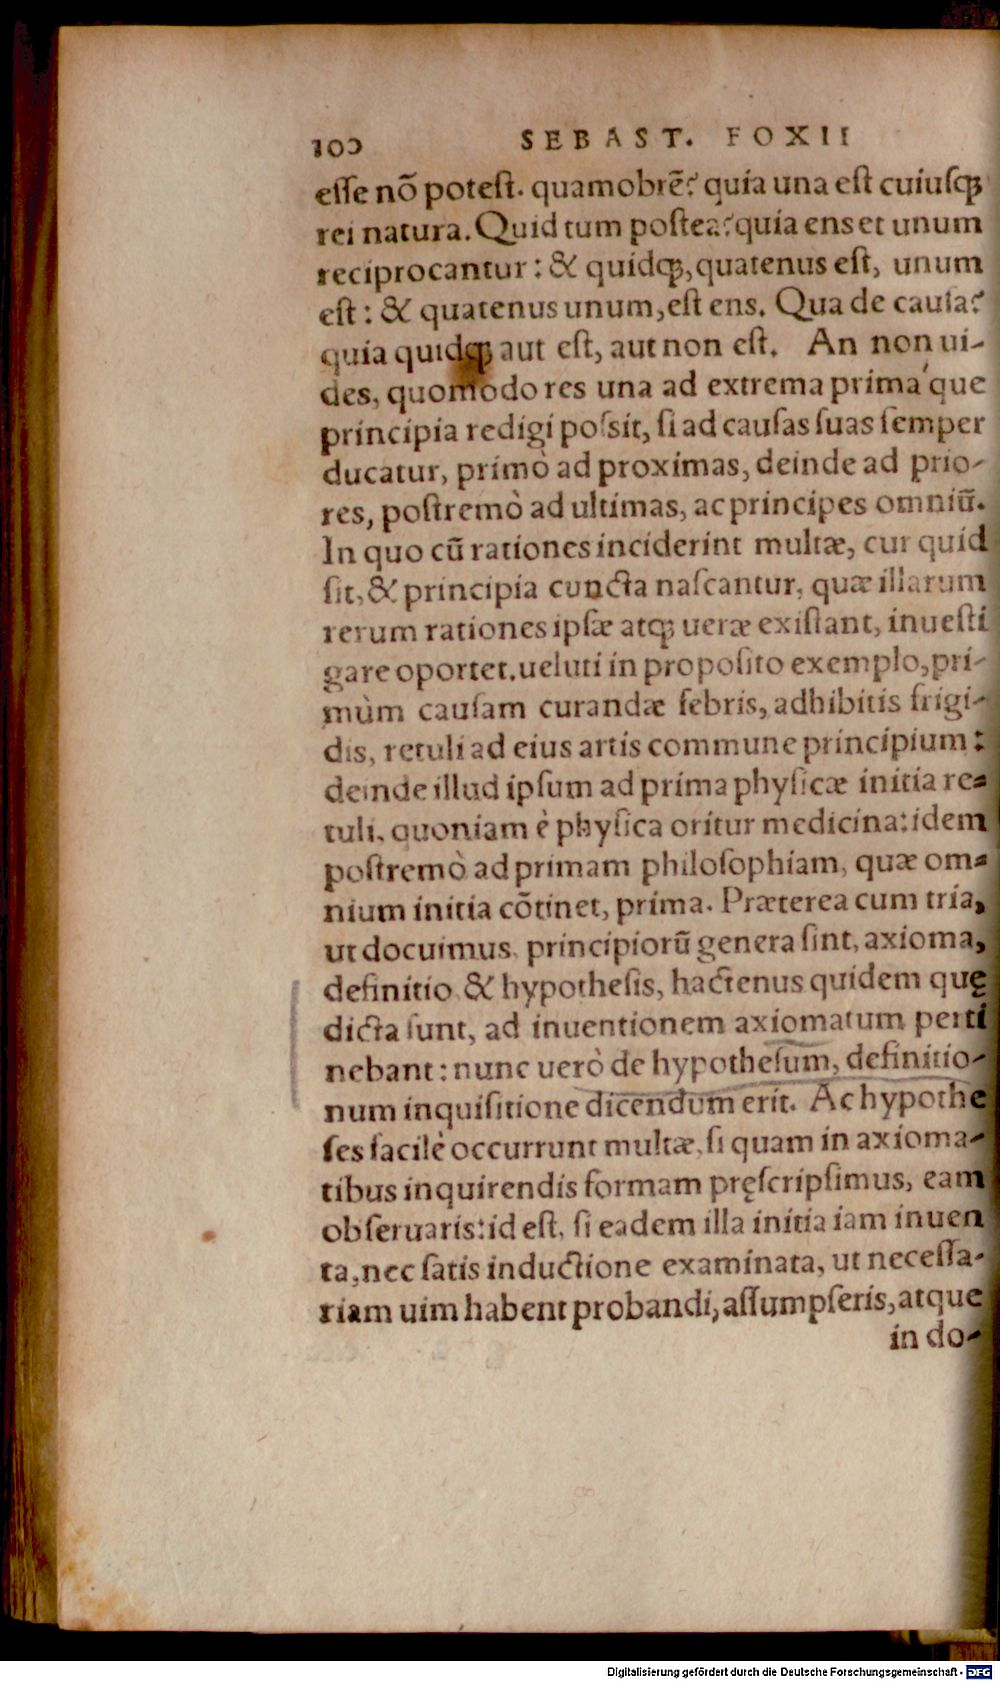 100 SEBAST. FOXII
esse nõ potest. quamobrẽ? quia una est cuiusqꝫ
rei natura. Quid tum postea? quia ens et unum
reciprocantur: & quidqꝫ, quatenus est, unum
est: & quatenus unum, est ens. Qua de causa?
quia quidqꝫ aut est, aut non est. An non ui-
des, quomodo res una ad extrema prima´que
principia redigi possit, si ad causas suas semper
ducatur, primò ad proximas, deinde ad prio-
res, postremò ad ultimas, ac principes omniũ.
In quo cũ rationes inciderint multæ, cur quid
sit, & principia cuncta nascantur, quæ illarum
rerum rationes ipsæ atqꝫ ueræ existant, inuesti
gare oportet. ueluti in proposito exemplo, pri-
mùm causam curandæ febris, adhibitis frigi-
dis, retuli ad eius artis commune principium:
deinde illud ipsum ad prima physicæ initia re-
tuli, quoniam è physica oritur medicina: idem
postremò ad primam philosophiam, quæ om-
nium initia cõtinet, prima. Præterea cum tria,
ut docuimus, principiorũ genera sint, axioma,
definitio & hypothesis, hactenus quidem quę
dicta sunt, ad inuentionem axiomatum perti
nebant: nunc uerò de hypothesum, definitio-
num inquisitione dicendum erit. Ac hypothe
ses facilè occurrunt multæ, si quam in axioma-
tibus inquirendis formam pręscripsimus, eam
obseruaris: id est, si eadem illa initia iam inuen
ta, nec satis inductione examinata, ut necessa-
riam uim habent probandi, assumpseris, atque
in do-
Digitalisierung gefördert durch die Deutsche Forschungsgemeinschaft - DFG